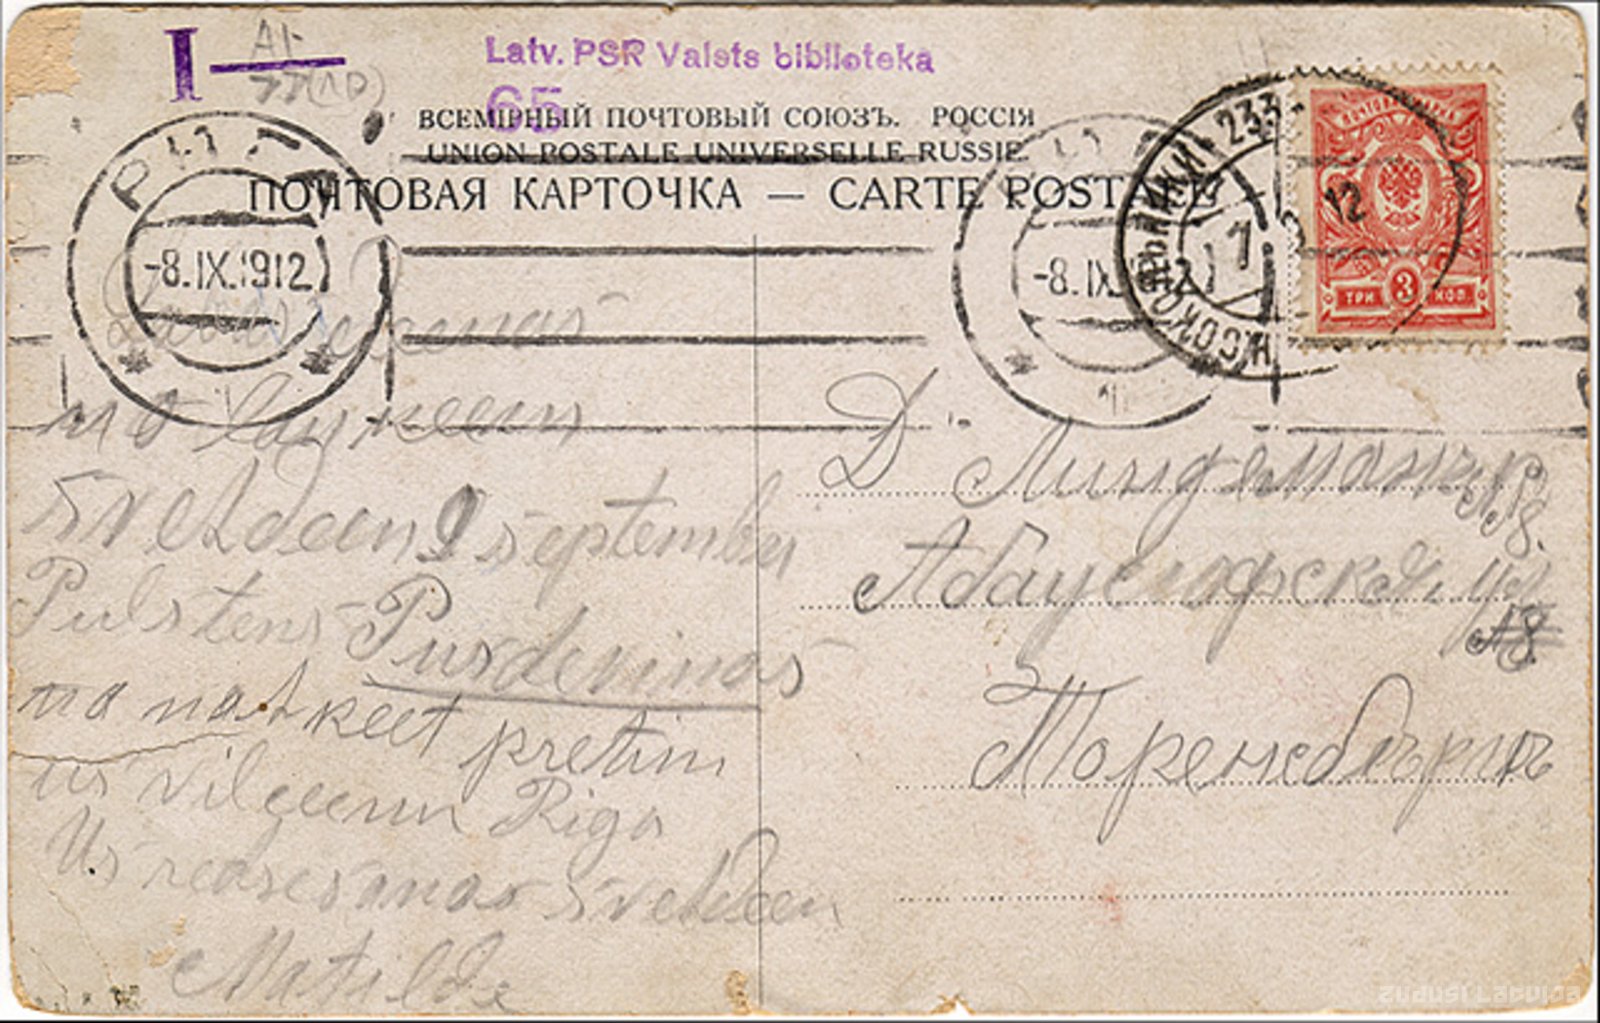 I
A1-
77(10)
Latv. PSR Valsts biblioteka
65
ВСЕМІРНЫЙ ПОЧТОВЫЙ СОЮЗЪ. РОССІЯ
UNION POSTALE UNIVERSELLE RUSSIE.
ПОЧТОВАЯ КАРТОЧКА — CARTE POSTALE
РИГА
-8.IX.1912
РИГА
-8.IX.1912
233
12
ПОЧТОВАЯ МАРКА
ТРИ 3 КОП.
Labdeenas
no laukeem
Svetdeen 9 septembri
Pulstens Pusdevinas
na natkeet pretim
us vilzeenu Riga
Us redsesanas Svetdeen
Matilde
Д Линдеманъ
№ 8.
Торенсбергъ
zudusi Latvija